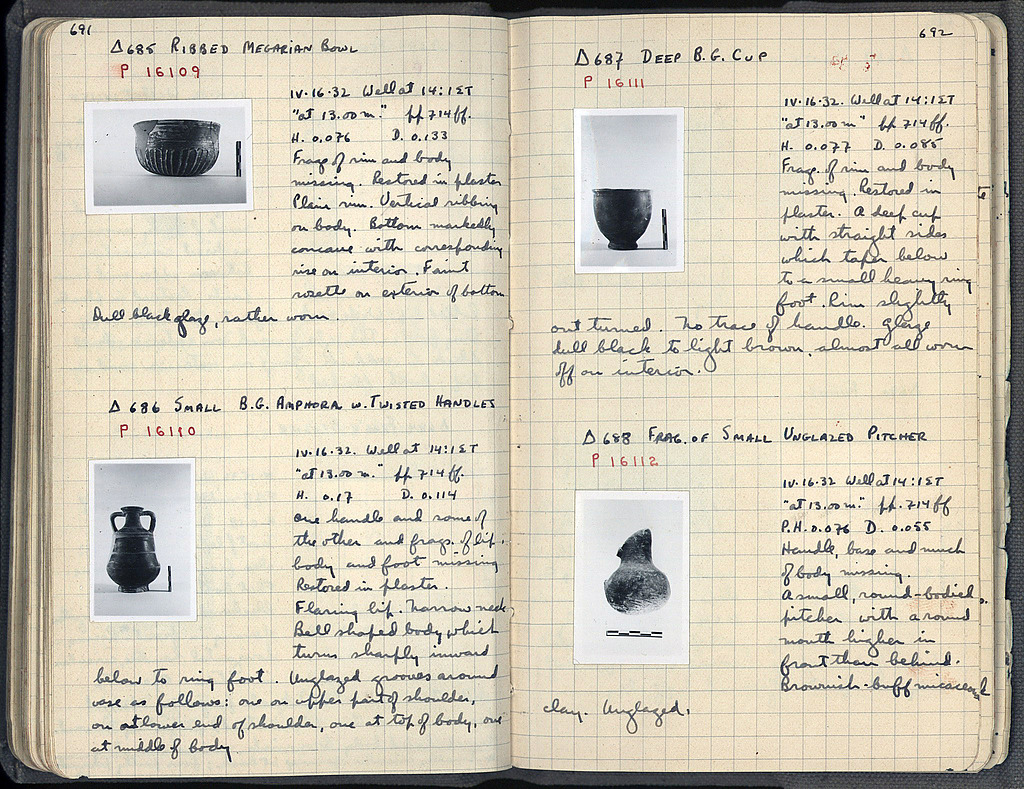 691
Δ 685 RIBBED MEGARIAN BOWL
P 16109
IV·16·32 Well at 14:1ΣΤ
"at 13.00 m." pp. 714 ff.
H. 0.076 D. 0.133
Frags of rim and body
missing. Restored in plaster
Plain rim. Vertical ribbing
on body. Bottom markedly
concave with corresponding
rise on interior. Faint
rosette on exterior of bottom
Dull black glaze, rather worn.
Δ 686 SMALL B.G. AMPHORA W. TWISTED HANDLES
P 16110
IV·16·32. Well at 14:1ΣΤ
"at 13.00 m." pp. 714 ff.
H. 0.17 D. 0.114
One handle and some of
the other and frags. of lip,
body and foot missing
Restored in plaster.
Flaring lip. Narrow neck
Bell shaped body which
turns sharply inward
below to ring foot. Unglazed grooves around
vase as follows: one on upper part of shoulder,
on at lower end of shoulder, one at top of body, one
at middle of body
692
Δ 687 DEEP B.G. CUP
P 16111
IV·16·32. Well at 14:1ΣΤ
"at 13.00 m" pp. 714 ff.
H. 0.077 D. 0.085
Frag. of rim and body
missing. Restored in
plaster. A deep cup
with straight sides
which taper below
to a small heavy ring
foot. Rim slightly
out turned. No trace of handle. Glaze
dull black to light brown, almost all worn
off on interior.
Δ 688 FRAG. OF SMALL UNGLAZED PITCHER
P 16112
IV·16·32 Well at 14:1ΣΤ
"at 13.00 m." pp. 714 ff
P.H. 0.076 D. 0.055
Handle, base and much
of body missing.
A small, round-bodied
pitcher with a round
mouth higher in
front than behind.
Brownish-buff micaceous
clay. Unglazed.